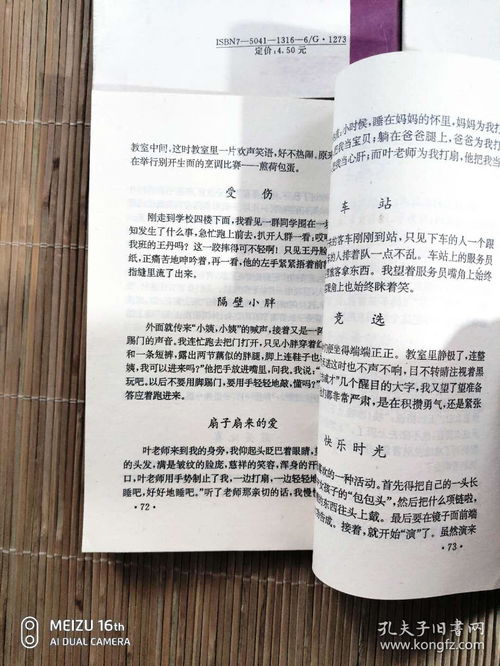 ISBN7—5041—1316—6/G·1273
定价:4.50元
教室中间,这时教室里一片欢声笑语,好不热闹,原来
在举行别开生而的烹调比赛——煎荷包蛋。
受 伤
刚走到学校四楼下面,我看见一群同学围在一
知发生了什么事,急忙跑上前去,扒开人群一看;哎
我班的王丹吗?这一跤摔得可不轻啊!只见王丹脸
纸,正痛苦地呻吟着,再一看,他的左手紧紧捂着前
指缝里流了出来。
隔壁小胖
外面就传来“小姨,小姨”的喊声,接着又是一阵
踢门的声音。我连忙跑去把门打开,只见小胖穿着
和一条短裤,露出两节藕似的胖腿,脚上连鞋子也
姨,我可以进来吗?”他把手放进嘴里,问我。我说:“
玩吧,以后不要用脚踢门,要用手轻轻地敲,懂吗?”
答应着跑进来。
扇子扇来的爱
叶老师来到我的身旁,我仰起头眨巴着眼睛,
的头发,满是皱纹的脸庞,慈祥的笑容,浑身的汗
口,叶老师用手势制止了我,一边打扇,一边轻轻地
睡吧,好好地睡吧。”听了老师那亲切的话,我慢
·72·
小时候,睡在妈妈的怀里,妈妈为我打
我当宝贝;躺在爸爸腿上,爸爸为我打
我当心肝;而叶老师为我打扇,他把我当
车 站
的客车刚刚到站,只见下车的人一个跟
的人排着队一点不乱。车站上的服务员
旅客拿东西。我望着服务员嘴角上始终
嘴角上也始终眯着笑。
竞 选
们便坐得端端正正。教室里静极了,连整
这时也不声不响,目不转睛注视着黑
成才”几个醒目的大字,我又望了望准备
们都非常严肃,是在积攒勇气,还是紧张
快乐时光
欢的一种活动。首先得把自己的一头长
女孩子的“包包头”,然后把什么项链啦,
的东西往头上戴。最后要在镜子面前端
合成。接着,就开始“演”了。虽然演来
·73·
MEIZU 16th
AI DUAL CAMERA
孔夫子旧书网
www.kongfz.com